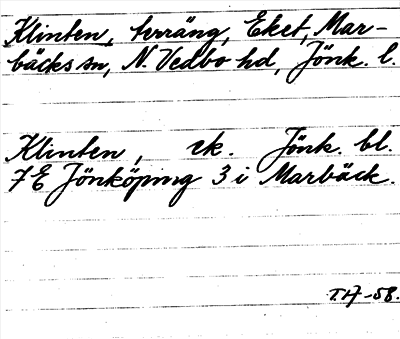 Klinten, terräng, Eket, Mar-
bäcks sn, N. Vedbo hd, Jönk. l.
Klinten, ek. Jönk. bl.
7E Jönköping 3 i Marbäck.
-58.